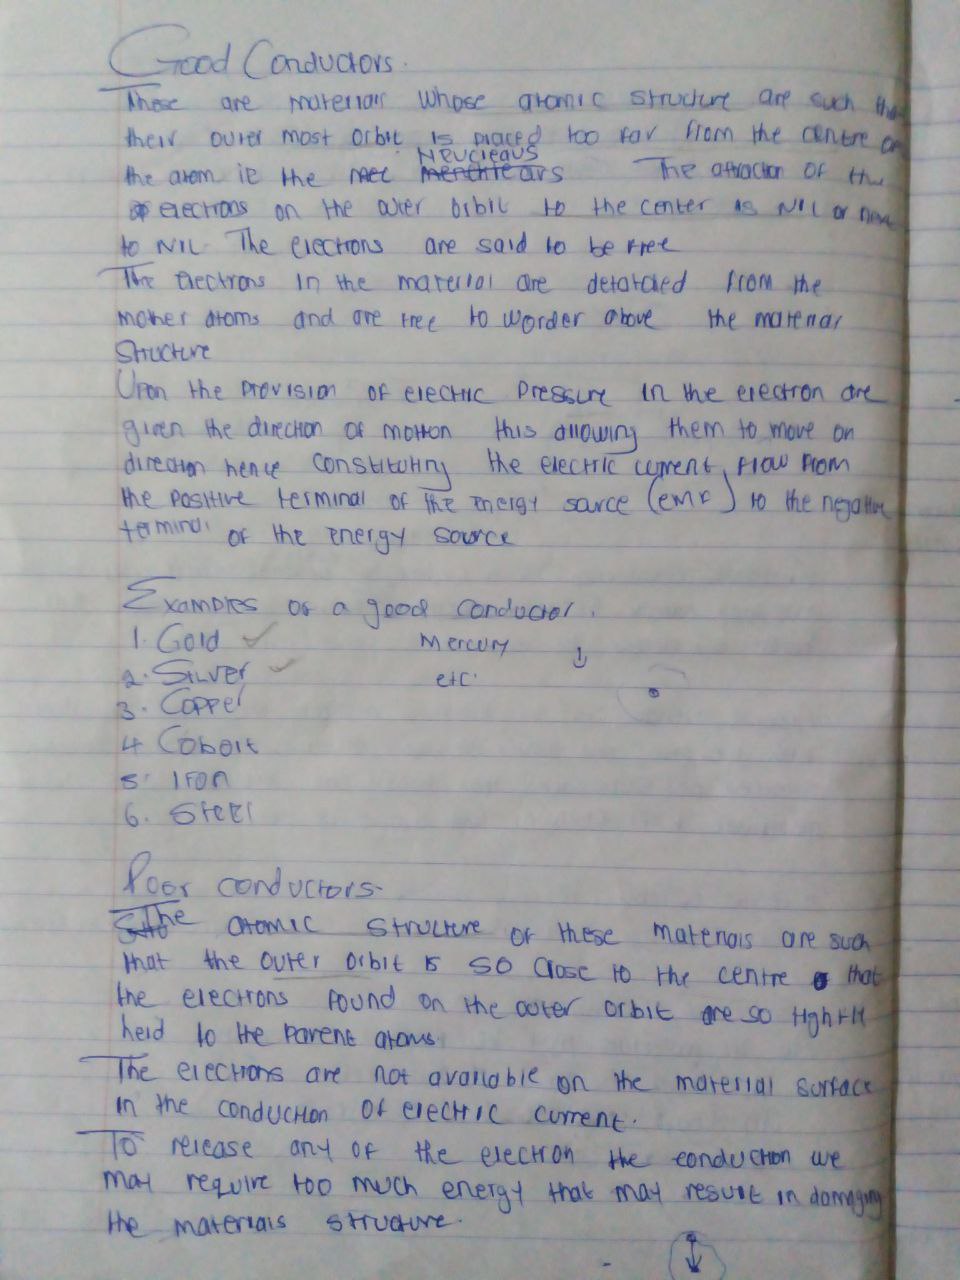 Good Conductors.
These are materials whose atomic structure are such tha
their outer most orbit is placed too far from the centre of
Neucleaus
the atom ie the The attraction of the
electrons on the outer orbit to the center is NIL or near
to NIL. The electrons are said to be free
The Electrons in the material are detatched from the
mother atoms and are free to worder above the material
Structure
Upon the provision of electric pressure in the electron are
given the direction of motion this allowing them to move on
direction hence constituting the electric current, flow from
the positive terminal of the energy source (emf) to the negative
terminal of the energy source
Examples of a good conductor.
1. Gold Mercury
2. Silver etc.
3. Copper
4 Cobolt
5. Iron
6. Steel
Poor conductors.
The atomic structure of these materials are such
that the outer orbit is so close to the centre that
the electrons found on the outer orbit are so tightly
held to the parent atoms.
The electrons are not available on the material surface
in the conduction of electric current.
To release any of the electron the conduction we
may require too much energy that may result in damaging
the materials structure.